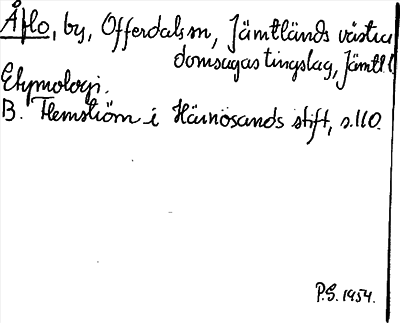 Åflo, by, Offerdals sn, Jämtlands västra
domsagas tingslag, Jämtl
Etymologi.
B. Flemström i Härnösands stift, s. 110.
P.S. 1954.